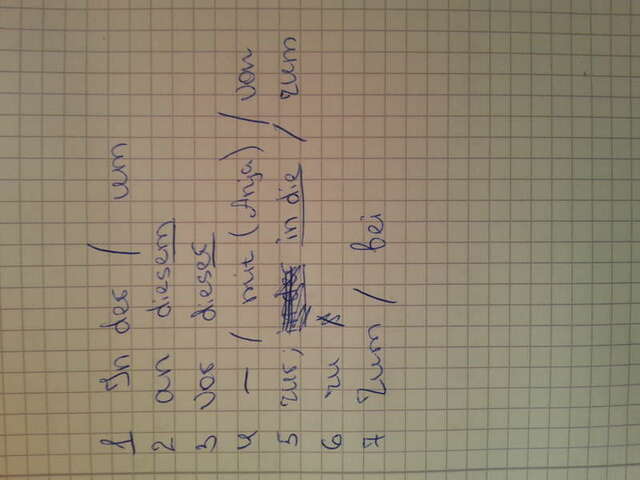 1 In der / um
2 an diesem
3 vor dieser
4 — / mit (Anja) / von
5 zur; in die / zum
6 zu
7 zum / bei